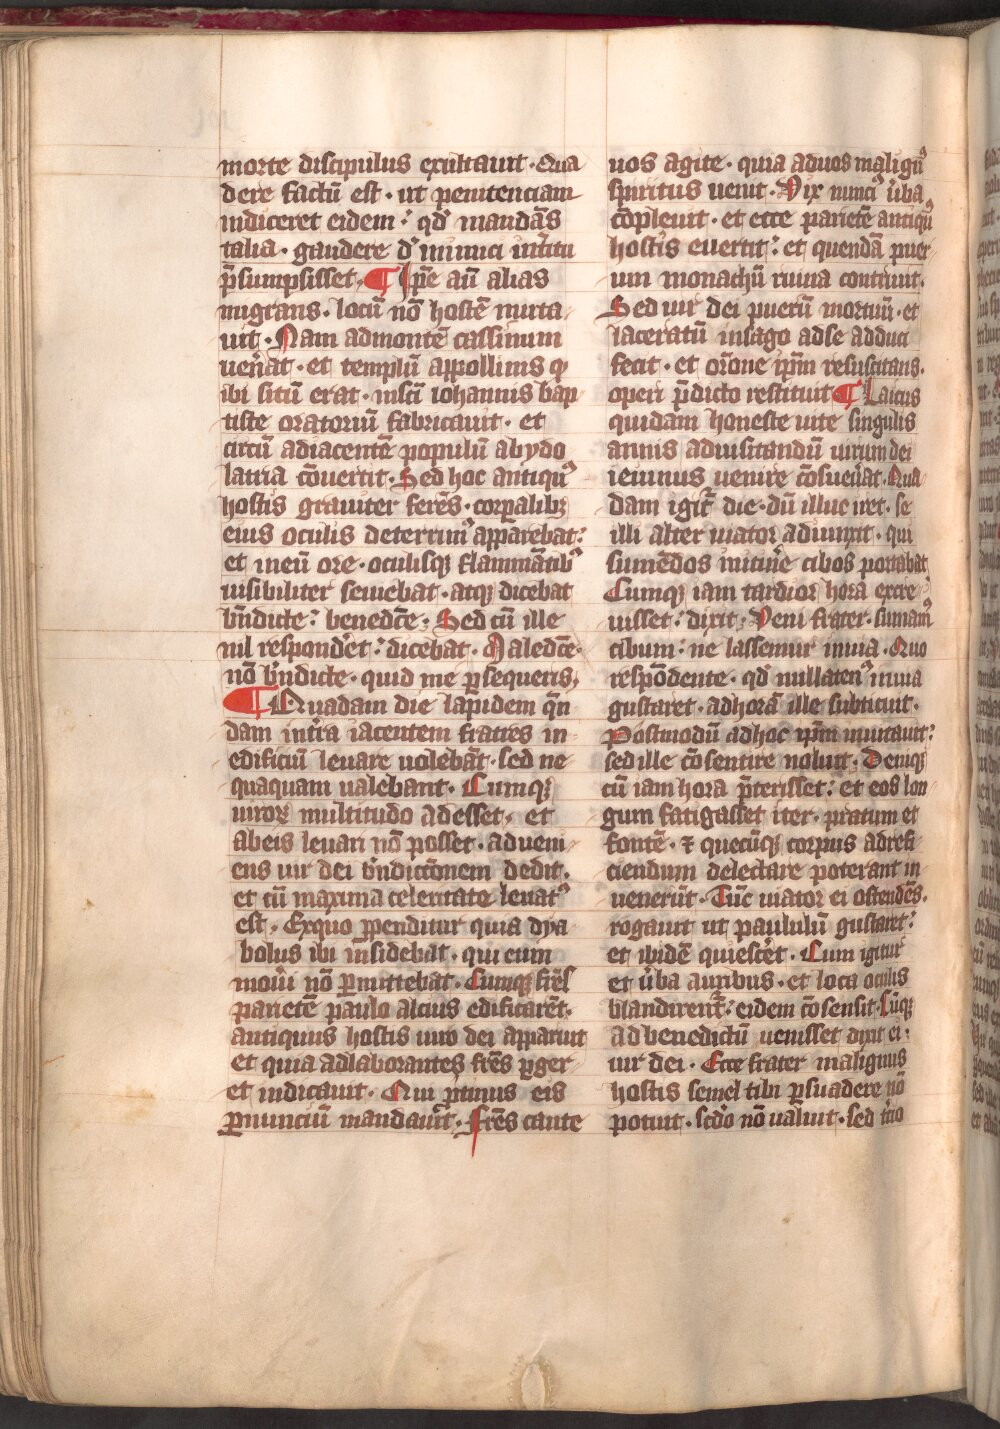 morte discipulus exultauit · Qua
dere factū est · ut penitenciam
indiceret eidem : qd̕ mandās
talia · gaudere d̕ inimici int̄itu
p̄sumpsisset · ¶ Ip̄e aū alias
migrans · locū nō hostē muta
uit · Nam admontē cassinum
uen̄at · et templū appollinis q̕
ibi situ̅ erat · insc̄i iohannis bap
tiste oratoriū fabricauit · et
circū adiacentē populū abydo
latria cōuertit · Sed hoc antiqu᷒
hostis grauiter ferēs · corp̄alibꝫ
eius oculis deterrim᷒ apparebat :
et ineū ore · oculisqꝫ flammātib᷒
uisibiliter seuiebat · atqꝫ dicebat
bn̄dicte : benedc̄e · Sed cū ille
nil respond̕et : dicebat · Maledc̄e ·
nō bn̄dicte · quid me ꝑsequeris ·
¶ Quadam die lapidem qn̄
dam int̄ra iacentem fratres in
edificiū leuare uolebāt · sed ne
quaquam ualebant · Cumqꝫ
uiroꝝ multitudo adesset · et
abeis leuari nō posset · adueni
ens uir dei bn̄dictōnem dedit ·
et cū maxima celeritate leuat᷒
est · Exquo ꝑpenditur quia dya
bolus ibi insidebat · qui eum
mou̕i nō ꝑmittebat · Cumqꝫ frēs
parietē paulo alcius edificarēt ·
antiquus hostis uiro dei apparuit
et quia adlaborantes frēs ꝑger
et indicauit · Qui p̄tinus eis
ꝑnunciū mandauit̄ · Frēs caute
uos agite · quia aduos malign᷒
spiritus uenit · Vix nunci᷒ u̕ba
cōpleuit · et ecce parietē antiqu᷒
hostis euertit : et quendā puer
um monachū ruina contriuit ·
Sed uir dei puerū mortuū · et
laceratū insago adse adduci
fecit · et orōne ip̄m resuscitans ·
operi p̄dicto restituit ¶ Laicus
quidam honeste uite singulis
annis aduisitandū uirum dei
ieiunus uenire cōsueu̕at · Qua
dam igit̄ die · dū illuc iret · se
illi alter uiator adiunxit · qui
sumēdos initin̄e cibos portabat
Cumqꝫ iam tardior hora excre
uisset : dixit · Veni frater · sumam᷒
cibum : ne lassemur inuia · Quo
respōdente · qd̕ nullaten᷒ inuia
gustaret · adhorā ille subticuit ·
Postmodū adhoc ip̄m inuitauit :
sed ille cōsentire noluit · Deniqꝫ
cū iam hora p̄terisset : et eos lon
gum fatigasset iter · pratum et
fontē · ⁊ quecūqꝫ corpus adrefi
ciendum delectare poterant in
uenerūt · Tūc uiator ei ostendēs ·
rogauit ut paululū gustaret :
et ibidē quiesc̄et · Cum igitur
et u̕ba auribus · et loca oculis
blandirent̄ : eidem cōsensit · Cūqꝫ
ad benedictū uenisset dixit ei :
uir dei · Ecce frater malignus
hostis semel tibi ꝑsuadere nō
potuit · scd̕o nō ualuit · sed t̄cio